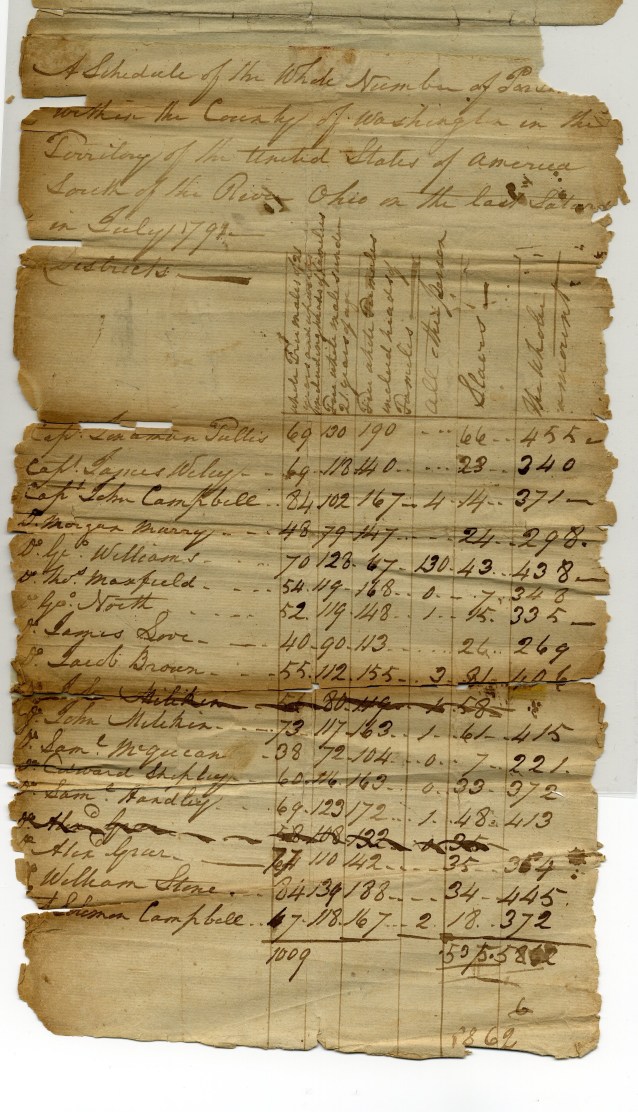 A Schedule of the Whole Number of
within the County of Washington in the
Territory of the United States of America
South of the River Ohio on the last
in July 179
Districts
White Free males of 21
including heads of families
Free white males under
21 years of age
Free white Females
includ heads of
Families
All other person
Slaves
The Whole
amount
Capt. Tullis 69 130 190 66 455
Capt. James Wiley 69 118 140 23 340
Capt. John Campbell 84 102 167 4 14 371
Do. Morgan Murry 48 79 147 24 298
Do. Geo. Williams 70 128 67 130 43 438
Do. Thos. Maxfield 54 119 168 0 7 348
Do. Geo. North 52 119 148 1 15 335
Do. James Love 40 90 113 26 269
Do. Jacob Brown 55 112 155 3 81 406
Miliken 80 119 1 58
Do. John Miliken 73 117 163 1 61 415
Do. Saml. McGuean 38 72 104 0 7 221
Do. Edward Shipley 60 116 163 0 33 372
Do. Saml. Handley 69 123 172 1 48 413
Do. Alexd. 58 108 132 0 35
Do. Alexd. Greer 110 142 35 364
William Stone 84 139 188 34 445
Solomon Campbell 67 118 167 2 18 372
1009 535 5862
6
5862